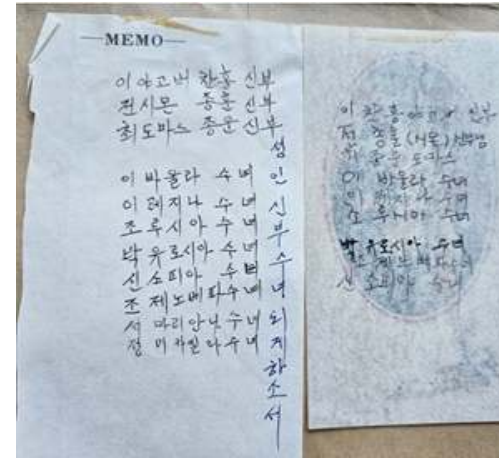 MEMO
이 야고버 찬홍 신부
전시몬 종훈 신부
최도마스 종운 신부
이 바울라 수녀
이 레지나 수녀
조루시아 수녀
박 유로시아 수녀
신소피아 수녀
조 제노베파수녀
서 마리안나 수녀
정 미카엘라수녀
성인 신부수녀 되게하소서
이 찬홍야고버 신부
전 종훈 (시몬)신부님
종운 도마스
이 바울라 수녀
이 레지나 수녀
조 루시아 수녀
박 유로시아 수녀
조 제노베파수녀
신 소피아 수녀